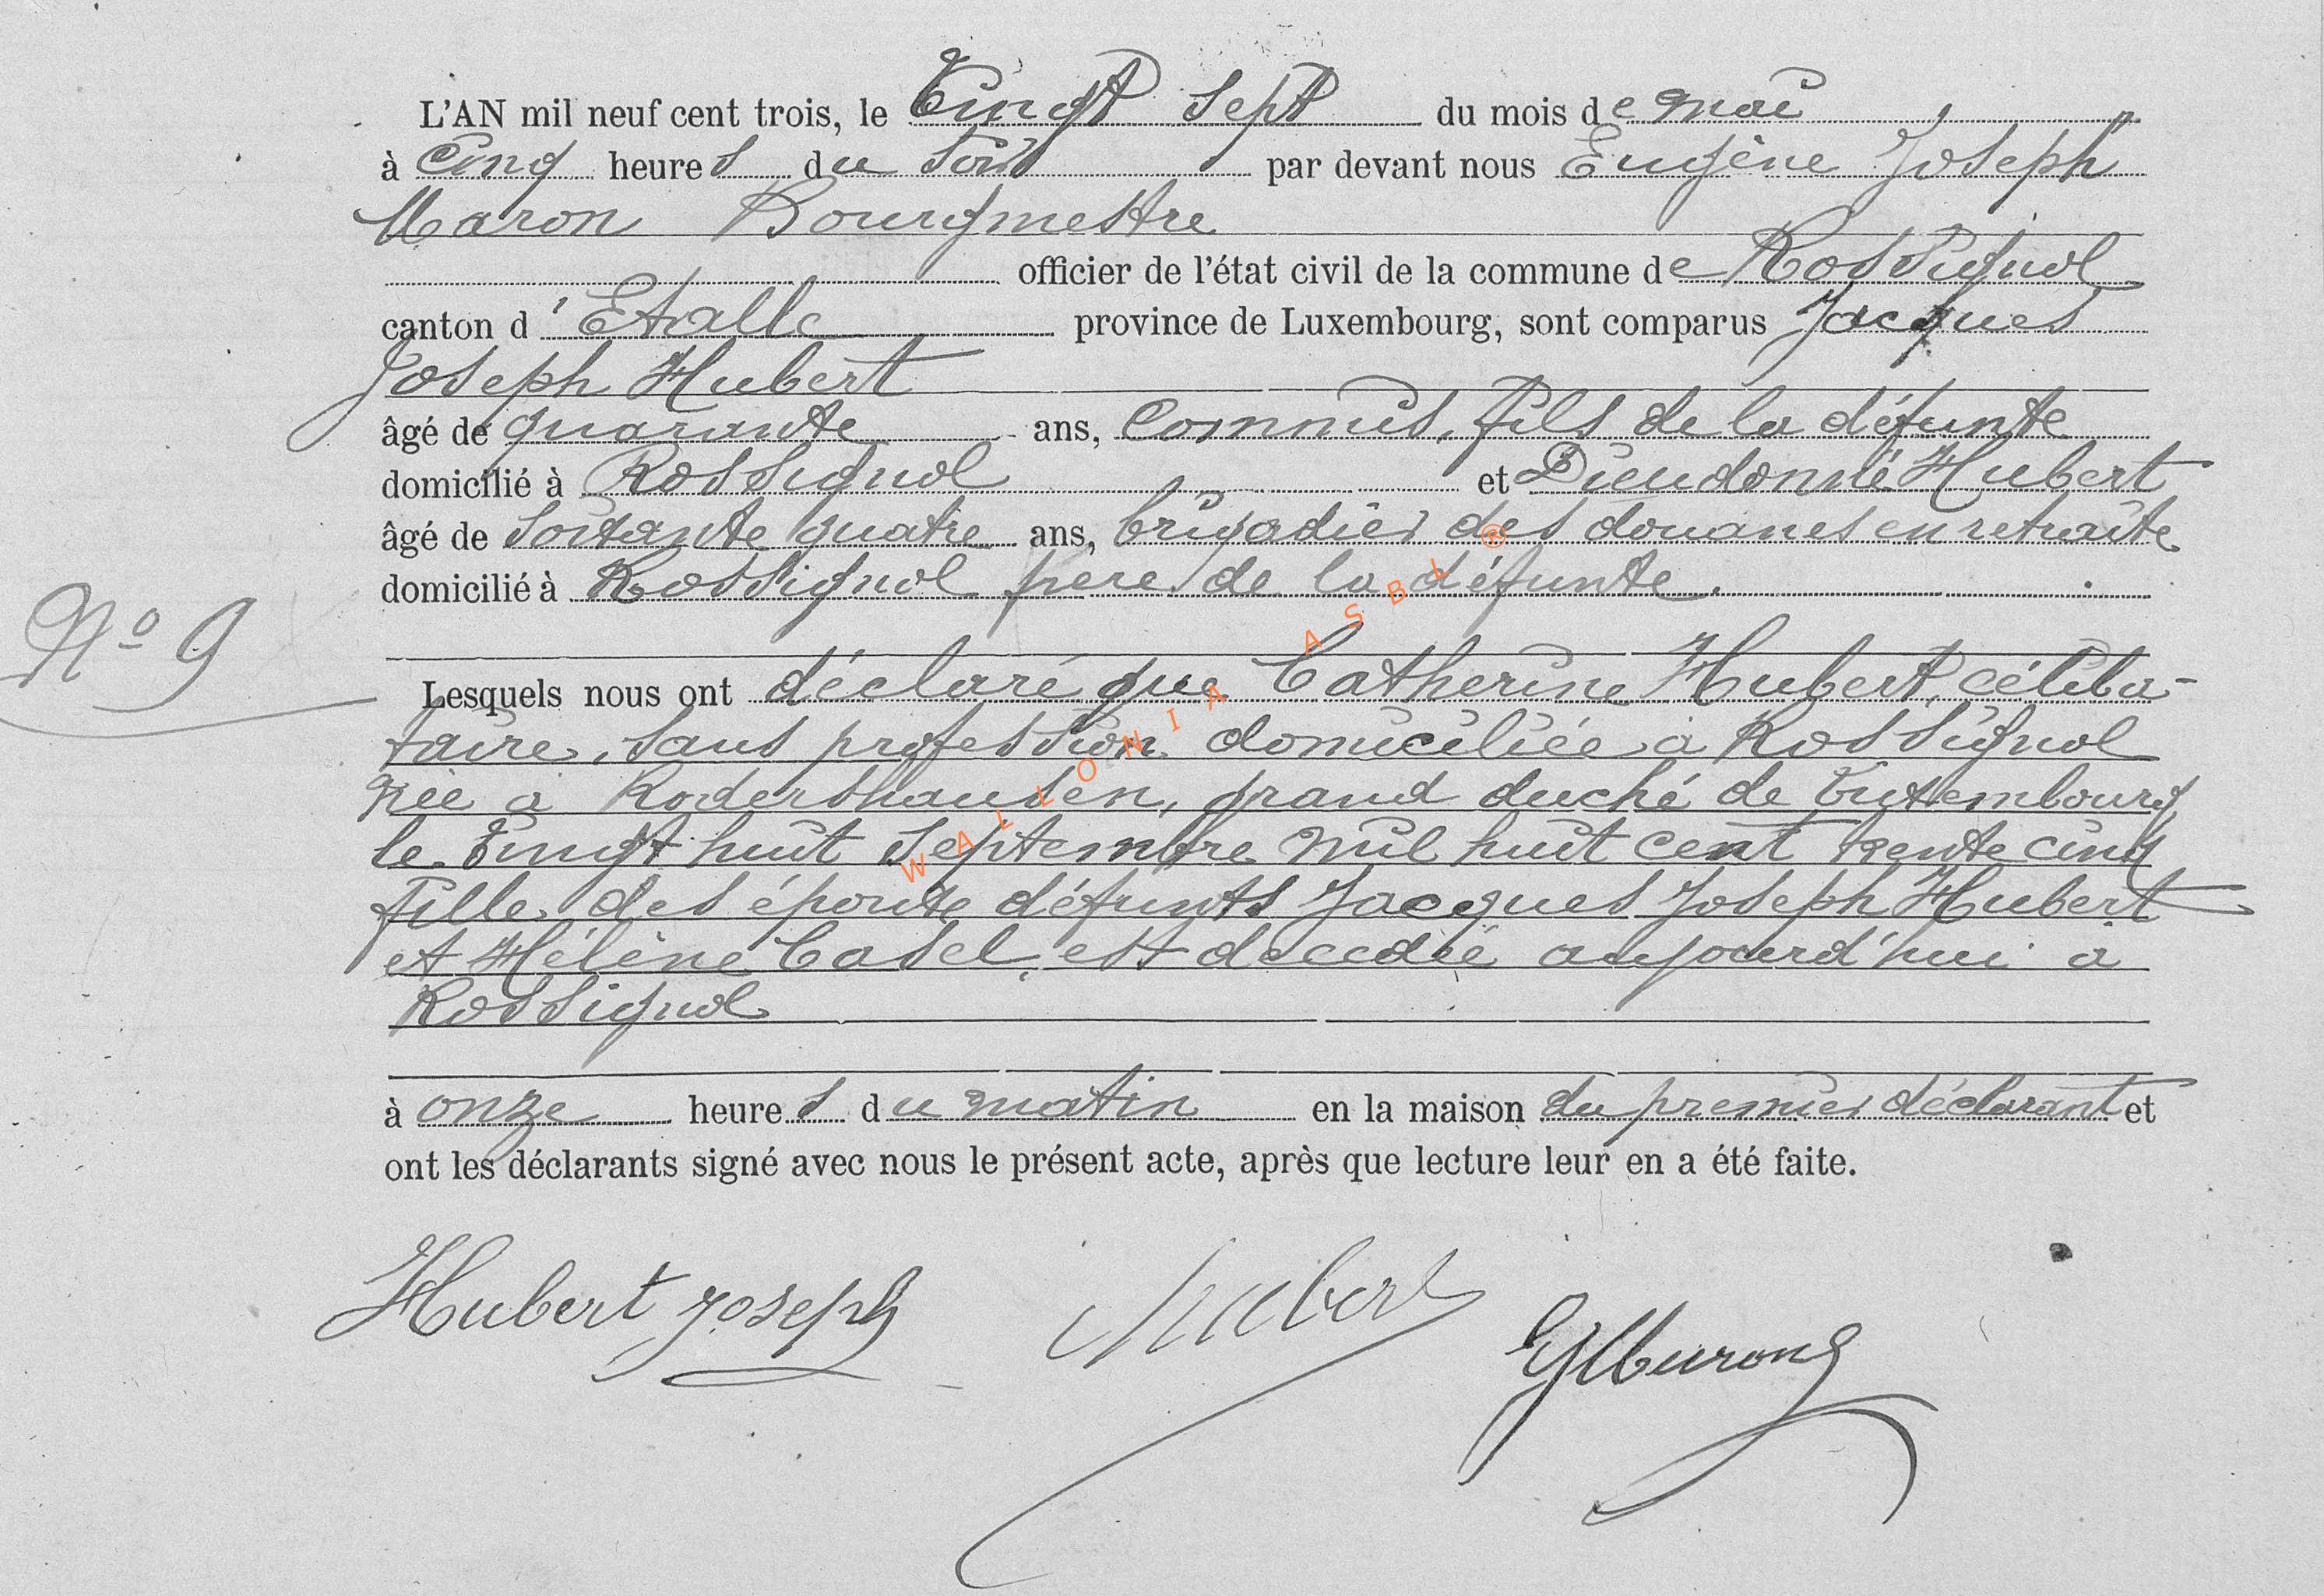 L'AN mil neuf cent trois, le Vingt Sept du mois de mai,
à Cinq heures du Soir par devant nous Eugène Joseph
Maron Bourgmestre
officier de l'état civil de la commune de Rossignol
canton d'Etalle province de Luxembourg, sont comparus Jacques
Joseph Hubert
âgé de quarante ans, Commis, fils de la défunte
domicilié à Rossignol et Dieudonné Hubert
âgé de Soixante quatre ans, brigadier des douanes en retraite
domicilié à Rossignol frere de la défunte.
N° 9
Lesquels nous ont déclaré que Catherine Hubert, céliba-
taire, sans profession domiciliée à Rossignol
née à Rodershausen, grand duché de Luxembourg,
le Vingt huit Septembre mil huit cent trente cinq
fille des époux défunts Jacques Joseph Hubert
et Hélène Casel, est decedée aujourd'hui à
Rossignol
à onze heures du matin en la maison du premier déclarant et
ont les déclarants signé avec nous le présent acte, après que lecture leur en a été faite.
Hubert Joseph Hubert EJMaron
WALLONIA ASBL ®